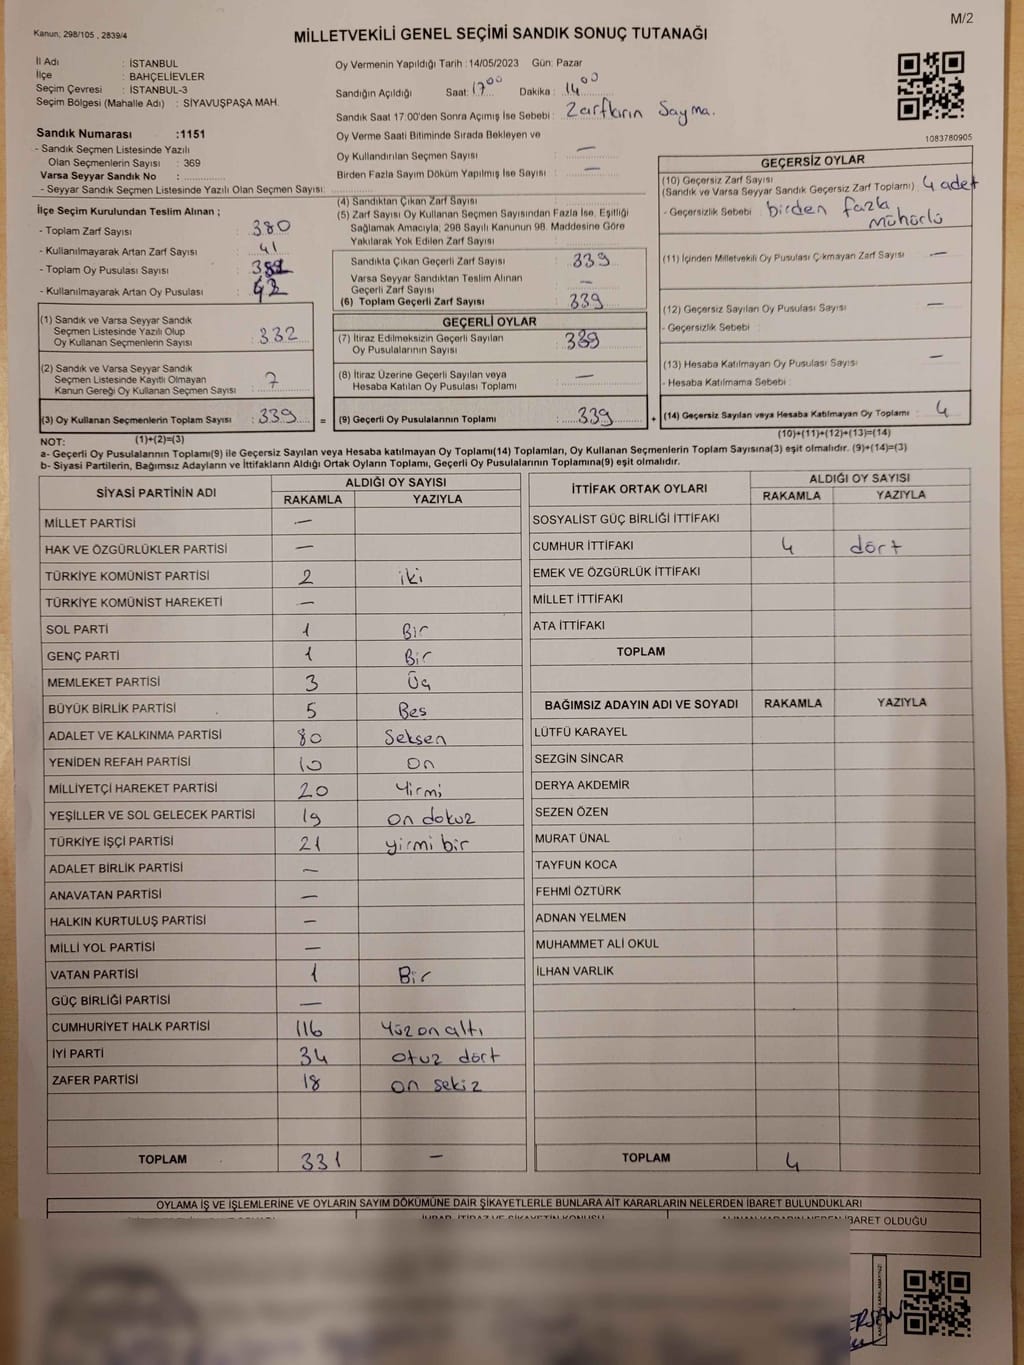 M/2
Kanun; 298/105 , 2839/4
MİLLETVEKİLİ GENEL SEÇİMİ SANDIK SONUÇ TUTANAĞI
İl Adı : İSTANBUL
İlçe : BAHÇELİEVLER
Seçim Çevresi : İSTANBUL-3
Seçim Bölgesi (Mahalle Adı) : SİYAVUŞPAŞA MAH.
Sandık Numarası :1151
- Sandık Seçmen Listesinde Yazılı
Olan Seçmenlerin Sayısı : 369
Varsa Seyyar Sandık No :
- Seyyar Sandık Seçmen Listesinde Yazılı Olan Seçmen Sayısı:
Oy Vermenin Yapıldığı Tarih :14/05/2023 Gün: Pazar
Sandığın Açıldığı Saat: 17 00 Dakika : 14 00
Sandık Saat 17.00'den Sonra Açımış İse Sebebi : Zarfların Sayma.
Oy Verme Saati Bitiminde Sırada Bekleyen ve
Oy Kullandırılan Seçmen Sayısı : —
Birden Fazla Sayım Döküm Yapılmış İse Sayısı : —
1083780905
İlçe Seçim Kurulundan Teslim Alınan ;
- Toplam Zarf Sayısı : 380
- Kullanılmayarak Artan Zarf Sayısı : 41
- Toplam Oy Pusulası Sayısı :
- Kullanılmayarak Artan Oy Pusulası : 42
(1) Sandık ve Varsa Seyyar Sandık
Seçmen Listesinde Yazılı Olup
Oy Kullanan Seçmenlerin Sayısı : 332
(2) Sandık ve Varsa Seyyar Sandık
Seçmen Listesinde Kayıtlı Olmayan
Kanun Gereği Oy Kullanan Seçmen Sayısı : 7
(3) Oy Kullanan Seçmenlerin Toplam Sayısı : 339
(1)+(2)=(3)
(4) Sandıktan Çıkan Zarf Sayısı :
(5) Zarf Sayısı Oy Kullanan Seçmen Sayısından Fazla İse, Eşitliği
Sağlamak Amacıyla, 298 Sayılı Kanunun 98. Maddesine Göre
Yakılarak Yok Edilen Zarf Sayısı :
Sandıkta Çıkan Geçerli Zarf Sayısı : 339
Varsa Seyyar Sandıktan Teslim Alınan
Geçerli Zarf Sayısı : —
(6) Toplam Geçerli Zarf Sayısı : 339
GEÇERLİ OYLAR
(7) İtiraz Edilmeksizin Geçerli Sayılan
Oy Pusulalarının Sayısı : 339
(8) İtiraz Üzerine Geçerli Sayılan veya
Hesaba Katılan Oy Pusulası Toplamı : —
= (9) Geçerli Oy Pusulalarının Toplamı : 339
GEÇERSİZ OYLAR
(10) Geçersiz Zarf Sayısı
(Sandık ve Varsa Seyyar Sandık Geçersiz Zarf Toplamı) : 4 adet
- Geçersizlik Sebebi : birden fazla
mühürlü
(11) İçinden Milletvekili Oy Pusulası Çıkmayan Zarf Sayısı —
(12) Geçersiz Sayılan Oy Pusulası Sayısı —
- Geçersizlik Sebebi :
(13) Hesaba Katılmayan Oy Pusulası Sayısı —
- Hesaba Katılmama Sebebi :
+ (14) Geçersiz Sayılan veya Hesaba Katılmayan Oy Toplamı : 4
(10)+(11)+(12)+(13)=(14)
NOT:
a- Geçerli Oy Pusulalarının Toplamı(9) ile Geçersiz Sayılan veya Hesaba Katılmayan Oy Toplamı(14) Toplamları, Oy Kullanan Seçmenlerin Toplam Sayısına(3) eşit olmalıdır. (9)+(14)=(3)
b- Siyasi Partilerin, Bağımsız Adayların ve İttifakların Aldığı Ortak Oyların Toplamı, Geçerli Oy Pusulalarının Toplamına(9) eşit olmalıdır.
SİYASİ PARTİNİN ADI ALDIĞI OY SAYISI
RAKAMLA YAZIYLA
MİLLET PARTİSİ —
HAK VE ÖZGÜRLÜKLER PARTİSİ —
TÜRKİYE KOMÜNİST PARTİSİ 2 iki
TÜRKİYE KOMÜNİST HAREKETİ —
SOL PARTİ 1 Bir
GENÇ PARTİ 1 Bir
MEMLEKET PARTİSİ 3 Üç
BÜYÜK BİRLİK PARTİSİ 5 Bes
ADALET VE KALKINMA PARTİSİ 80 Seksen
YENİDEN REFAH PARTİSİ 10 On
MİLLİYETÇİ HAREKET PARTİSİ 20 Yirmi
YEŞİLLER VE SOL GELECEK PARTİSİ 19 on dokuz
TÜRKİYE İŞÇİ PARTİSİ 21 yirmi bir
ADALET BİRLİK PARTİSİ —
ANAVATAN PARTİSİ —
HALKIN KURTULUŞ PARTİSİ —
MİLLİ YOL PARTİSİ —
VATAN PARTİSİ 1 Bir
GÜÇ BİRLİĞİ PARTİSİ —
CUMHURİYET HALK PARTİSİ 116 Yüz on altı
İYİ PARTİ 34 otuz dört
ZAFER PARTİSİ 18 on sekiz
TOPLAM 331 —
İTTİFAK ORTAK OYLARI ALDIĞI OY SAYISI
RAKAMLA YAZIYLA
SOSYALİST GÜÇ BİRLİĞİ İTTİFAKI
CUMHUR İTTİFAKI 4 dört
EMEK VE ÖZGÜRLÜK İTTİFAKI
MİLLET İTTİFAKI
ATA İTTİFAKI
TOPLAM
BAĞIMSIZ ADAYIN ADI VE SOYADI RAKAMLA YAZIYLA
LÜTFÜ KARAYEL
SEZGİN SİNCAR
DERYA AKDEMİR
SEZEN ÖZEN
MURAT ÜNAL
TAYFUN KOCA
FEHMİ ÖZTÜRK
ADNAN YELMEN
MUHAMMET ALİ OKUL
İLHAN VARLIK
TOPLAM 4
OYLAMA İŞ VE İŞLEMLERİNE VE OYLARIN SAYIM DÖKÜMÜNE DAİR ŞİKAYETLERLE BUNLARA AİT KARARLARIN NELERDEN İBARET BULUNDUKLARI
İBARET OLDUĞU